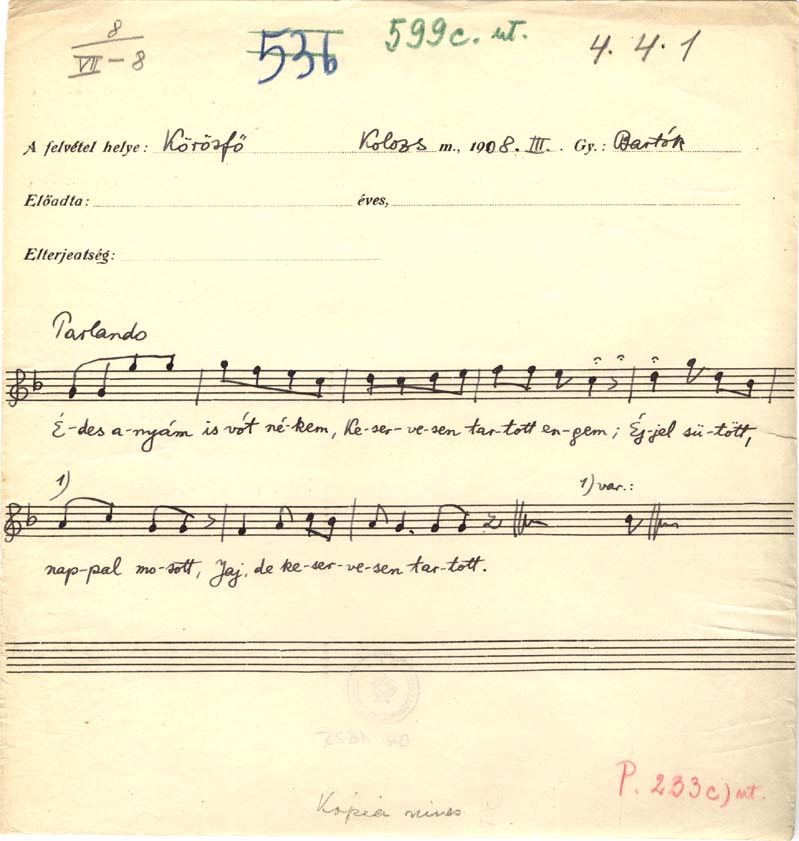 8
VII – 8
536
599c. ut.
4. 4. 1
A felvétel helye: Körösfő Kolozs m., 1908. III. Gy.: Bartók
Előadta: éves,
Elterjedtség:
Parlando
É-des a-nyám is vót né-kem, Ke-ser-ve-sen tar-tott en-gem; Éj-jel sü-tött,
1) 1) var.:
nap-pal mo-sott, Jaj, de ke-ser-ve-sen tar-tott.
P. 233c) ut.
Kópia nincs